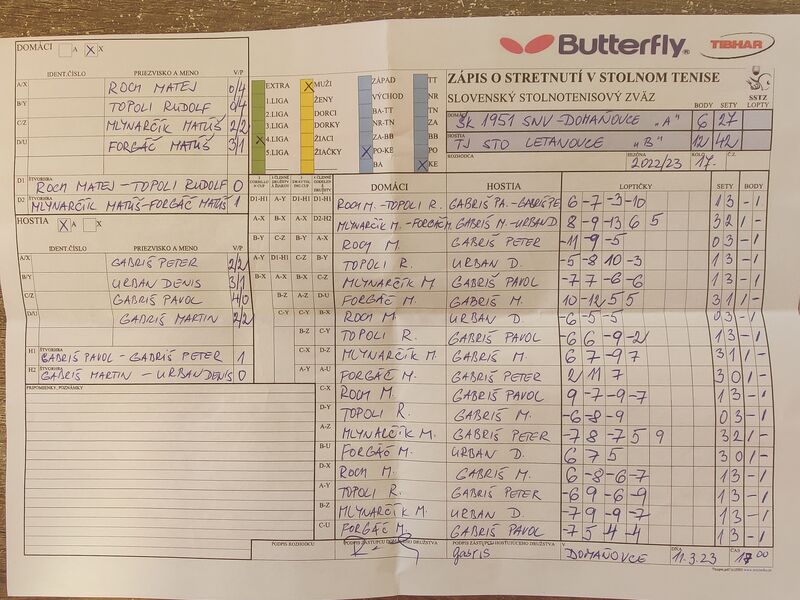 Butterfly®
TIBHAR
ZÁPIS O STRETNUTÍ V STOLNOM TENISE
SLOVENSKÝ STOLNOTENISOVÝ ZVÄZ
SSTZ
BODY SETY LOPTY
DOMÁCI ŠK 1951 SNV-DOMAŇOVCE "A" 6 27
HOSTIA TJ STO LETANOVCE "B" 12 42
ROZHODCA SEZÓNA 2022/23 KOLO 17. Č.Z.
DOMÁCI A X X
IDENT.ČÍSLO PRIEZVISKO A MENO V/P
A/X ROCH MATEJ 0/4
B/Y TOPOLI RUDOLF 0/4
C/Z MLYNARČÍK MATÚŠ 2/2
D/U FORGÁČ MATÚŠ 3/1
D1 ŠTVORHRA ROCH MATEJ - TOPOLI RUDOLF 0
D2 ŠTVORHRA MLYNARČÍK MATÚŠ-FORGÁČ MATÚŠ 1
HOSTIA X A X
IDENT.ČÍSLO PRIEZVISKO A MENO V/P
A/X GABRIŠ PETER 2/2
B/Y URBAN DENIS 3/1
C/Z GABRIŠ PAVOL 4/0
D/U GABRIŠ MARTIN 2/2
H1 ŠTVORHRA GABRIŠ PAVOL - GABRIŠ PETER 1
H2 ŠTVORHRA GABRIŠ MARTIN - URBAN DENIS 0
PRIPOMIENKY, POZNÁMKY
EXTRA X MUŽI ZÁPAD TT
1.LIGA ŽENY VÝCHOD NR
2.LIGA DORCI BA-TT TN
3.LIGA DORKY NR-TN ZA
X 4.LIGA ŽIACI ZA-BB BB
5.LIGA ŽIAČKY X PO-KE PO
BA X KE
DOMÁCI HOSTIA LOPTIČKY SETY BODY
D1-H1 A-Y D1-H1 D1-H1 ROCH M.-TOPOLI R. GABRIŠ PA.-GABRIŠ PE 6 -7 -3 -10 1 3 - 1
A-X B-X B-X D2-H2 MLYNARČÍK M.-FORGÁČ M. GABRIŠ M.-URBAN D 8 -9 -13 6 5 3 2 1 -
B-Y C-Z B-Y A-X ROCH M. GABRIŠ PETER -11 -9 -5 0 3 - 1
A-Y D1-H1 C-Z B-Y TOPOLI R. URBAN D. -5 -8 10 -3 1 3 - 1
B-X A-X B-X C-Z MLYNARČÍK M. GABRIŠ PAVOL -7 7 -6 -6 1 3 - 1
B-Z A-Z D-U FORGÁČ M. GABRIŠ M. 10 -12 5 5 3 1 1 -
C-Y C-Y B-X ROCH M. URBAN D. -6 -5 -5 0 3 - 1
B-Z C-Y TOPOLI R. GABRIŠ PAVOL -6 6 -9 -2 1 3 - 1
C-X D-Z MLYNARČÍK M. GABRIŠ M. 6 7 -9 7 3 1 1 -
A-Y A-U FORGÁČ M. GABRIŠ PETER 2 11 7 3 0 1 -
C-X ROCH M. GABRIŠ PAVOL 9 -7 -9 -7 1 3 - 1
D-Y TOPOLI R. GABRIŠ M. -6 -8 -9 0 3 - 1
A-Z MLYNARČÍK M. GABRIŠ PETER -7 8 -7 5 9 3 2 1 -
B-U FORGÁČ M. URBAN D. 6 7 5 3 0 1 -
D-X ROCH M. GABRIŠ M. 6 -8 -6 -7 1 3 - 1
A-Y TOPOLI R. GABRIŠ PETER -6 9 -6 -9 1 3 - 1
B-Z MLYNARČÍK M. URBAN D. -7 9 -9 -7 1 3 - 1
C-U FORGÁČ M. GABRIŠ PAVOL -7 5 -4 -4 1 3 - 1
PODPIS ROZHODCU PODPIS ZÁSTUPCU DOMÁCEHO DRUŽSTVA PODPIS ZÁSTUPCU HOSŤUJÚCEHO DRUŽSTVA V DŇA ČAS
gabris DOMAŇOVCE 11.3.23 17 00